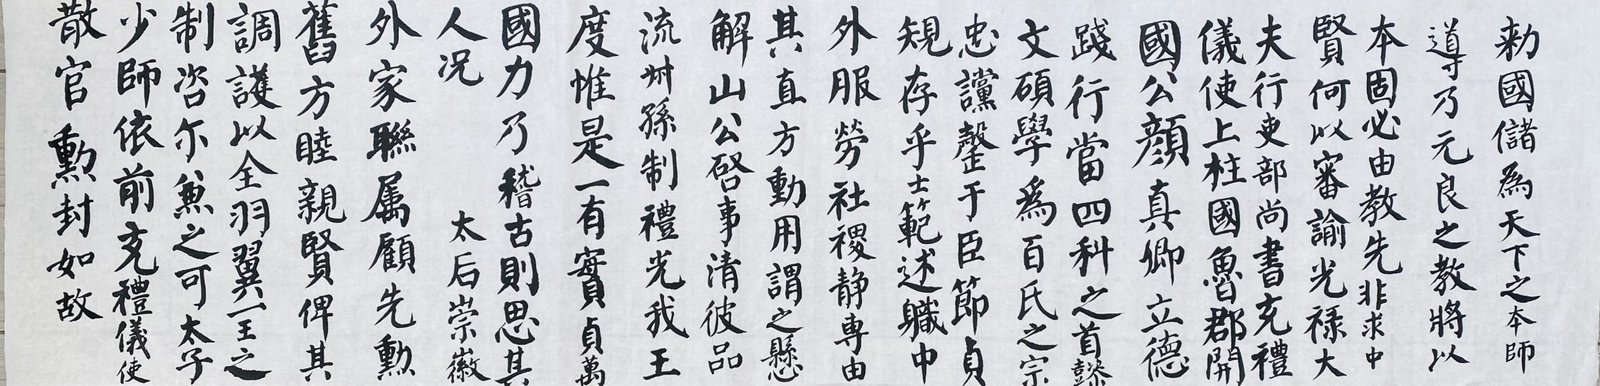 勅國儲為天下之本師
導乃元良之教將以
本固必由教先非求中
賢何以審諭光祿大
夫行吏部尚書充禮
儀使上柱國魯郡開
國公顏真卿立德
踐行當四科之首懿
文碩學為百氏之宗
忠讜罄于臣節貞
規存乎士範述職中
外服勞社稷静専由
其直方動用謂之懸
解山公啓事清彼品
流州孫制禮光我王
度惟是一有實貞萬
國力乃稽古則思其
人况 太后崇徽
外家聯属顧先勳
舊方睦親賢俾其
調護以全羽翼一王之
制咨尓兼之可太子
少師依前充禮儀使
散官勳封如故